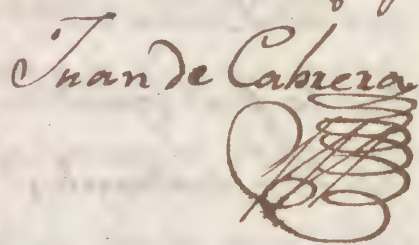 Juan de Cabrera